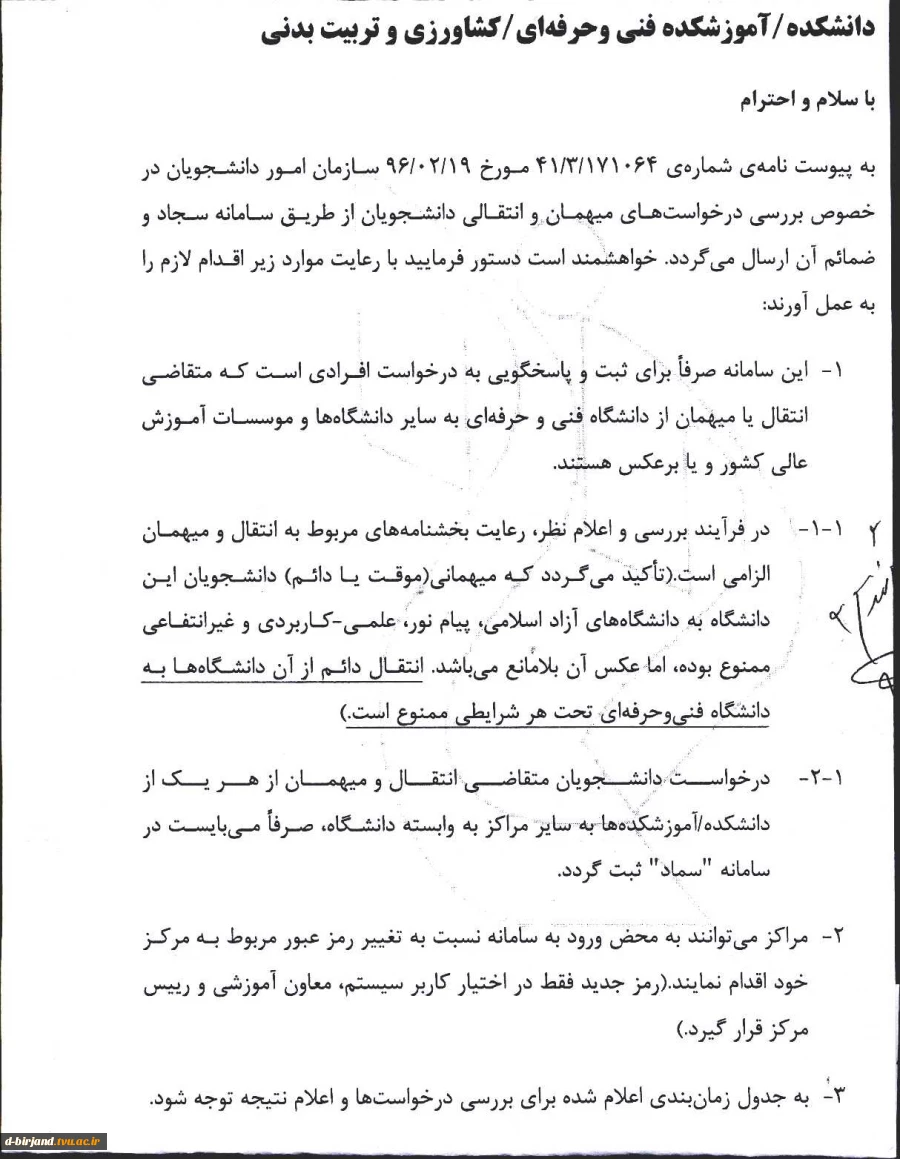 دانشکده/آموزشکده فنی وحرفه‌ای/کشاورزی و تربیت بدنی
با سلام و احترام
به پیوست نامه‌ی شماره‌ی ۴۱/۳/۱۷۱۰۶۴ مورخ ۹۶/۰۲/۱۹ سازمان امور دانشجویان در
خصوص بررسی درخواست‌های میهمان و انتقالی دانشجویان از طریق سامانه سجاد و
ضمائم آن ارسال می‌گردد. خواهشمند است دستور فرمایید با رعایت موارد زیر اقدام لازم را
به عمل آورند:
۱- این سامانه صرفاً برای ثبت و پاسخگویی به درخواست افرادی است که متقاضی
انتقال یا میهمان از دانشگاه فنی و حرفه‌ای به سایر دانشگاه‌ها و موسسات آموزش
عالی کشور و یا برعکس هستند.
۱-۱- در فرآیند بررسی و اعلام نظر، رعایت بخشنامه‌های مربوط به انتقال و میهمان
الزامی است.(تأکید می‌گردد که میهمانی(موقت یا دائم) دانشجویان این
دانشگاه به دانشگاه‌های آزاد اسلامی، پیام نور، علمی-کاربردی و غیرانتفاعی
ممنوع بوده، اما عکس آن بلامانع می‌باشد. انتقال دائم از آن دانشگاه‌ها به
دانشگاه فنی‌وحرفه‌ای تحت هر شرایطی ممنوع است.)
۱-۲- درخواست دانشجویان متقاضی انتقال و میهمان از هر یک از
دانشکده/آموزشکده‌ها به سایر مراکز به وابسته دانشگاه، صرفاً می‌بایست در
سامانه "سماد" ثبت گردد.
۲- مراکز می‌توانند به محض ورود به سامانه نسبت به تغییر رمز عبور مربوط به مرکز
خود اقدام نمایند.(رمز جدید فقط در اختیار کاربر سیستم، معاون آموزشی و رییس
مرکز قرار گیرد.)
۳- به جدول زمان‌بندی اعلام شده برای بررسی درخواست‌ها و اعلام نتیجه توجه شود.
d-birjand.tvu.ac.ir